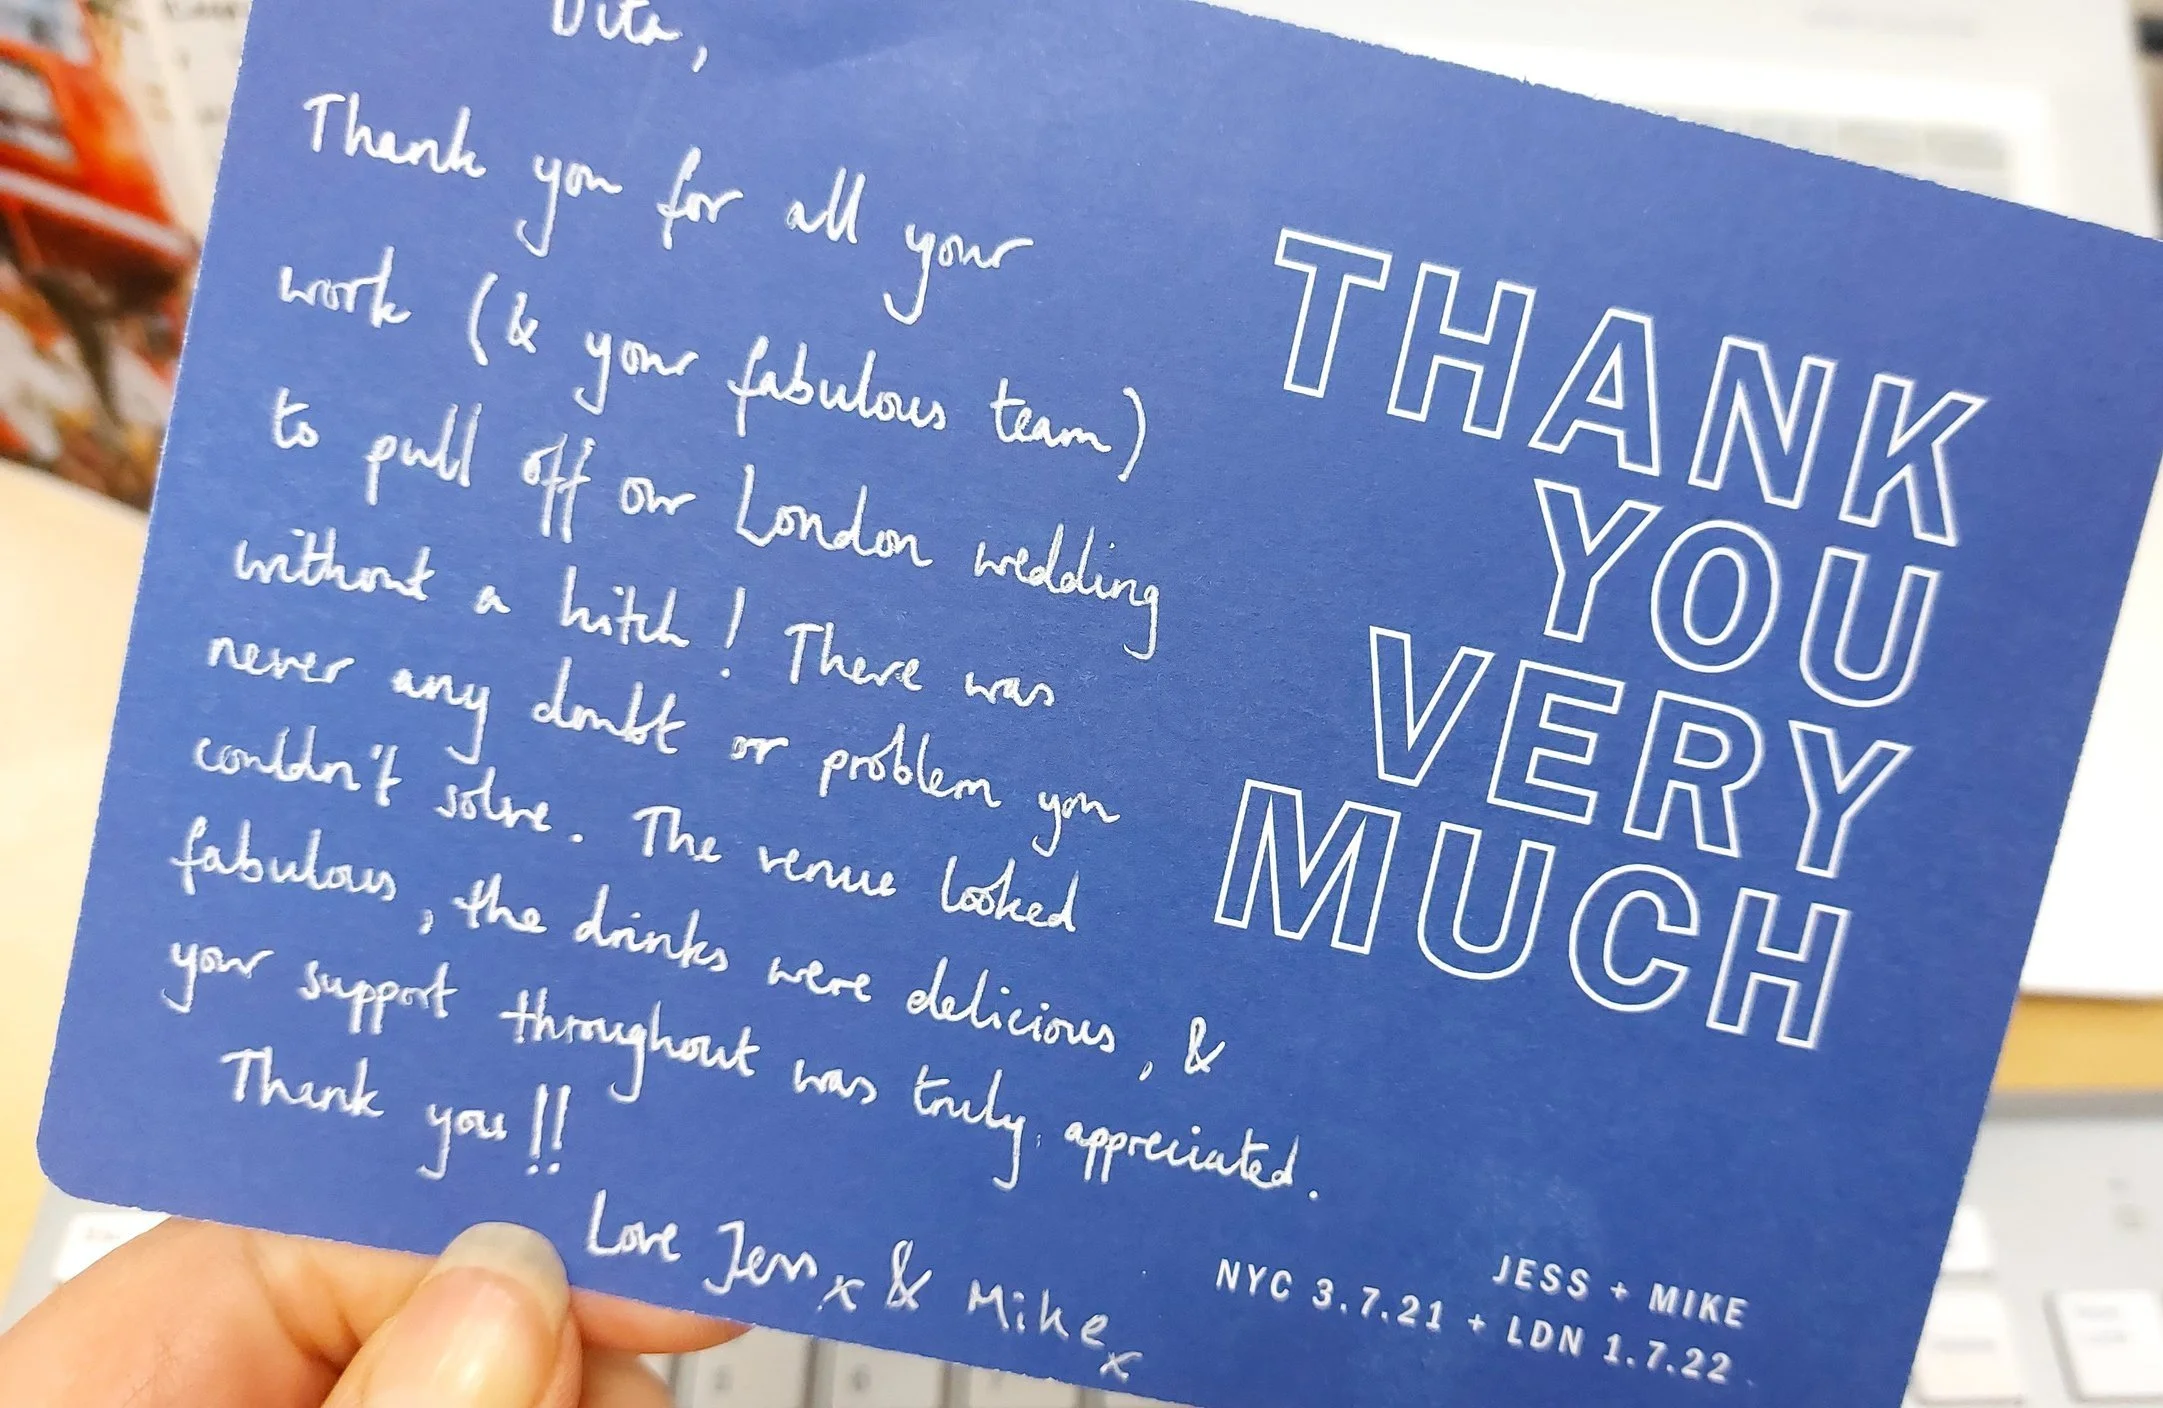 Vita,
Thank you for all your
work (& your fabulous team)
to pull off our London wedding
without a hitch! There was
never any doubt or problem you
couldn't solve. The venue looked
fabulous, the drinks were delicious, &
your support throughout was truly appreciated.
Thank you!!
Love Jess x & Mike x
THANK
YOU
VERY
MUCH
JESS + MIKE
NYC 3.7.21 + LDN 1.7.22